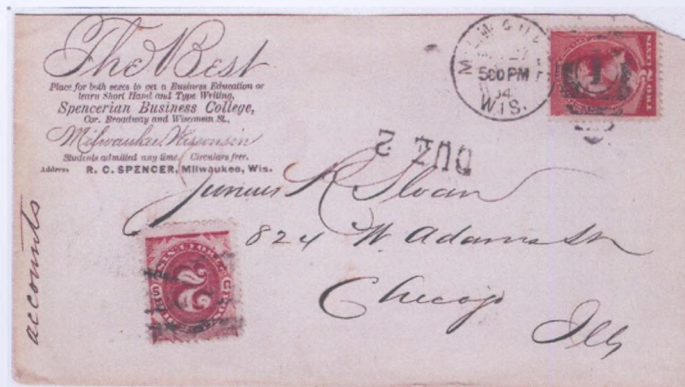 The Best
Place for both sexes to get a Business Education or
learn Short Hand and Type Writing,
Spencerian Business College,
Cor. Broadway and Wisconsin St.,
Milwaukee, Wisconsin
Students admitted any time. Circulars free.
Address R. C. SPENCER, Milwaukee, Wis.
500 PM
WIS.
TWO CENTS
DUE 2
Junius R Sloan
824 W. Adams St
Chicago
Ills
accounts
2